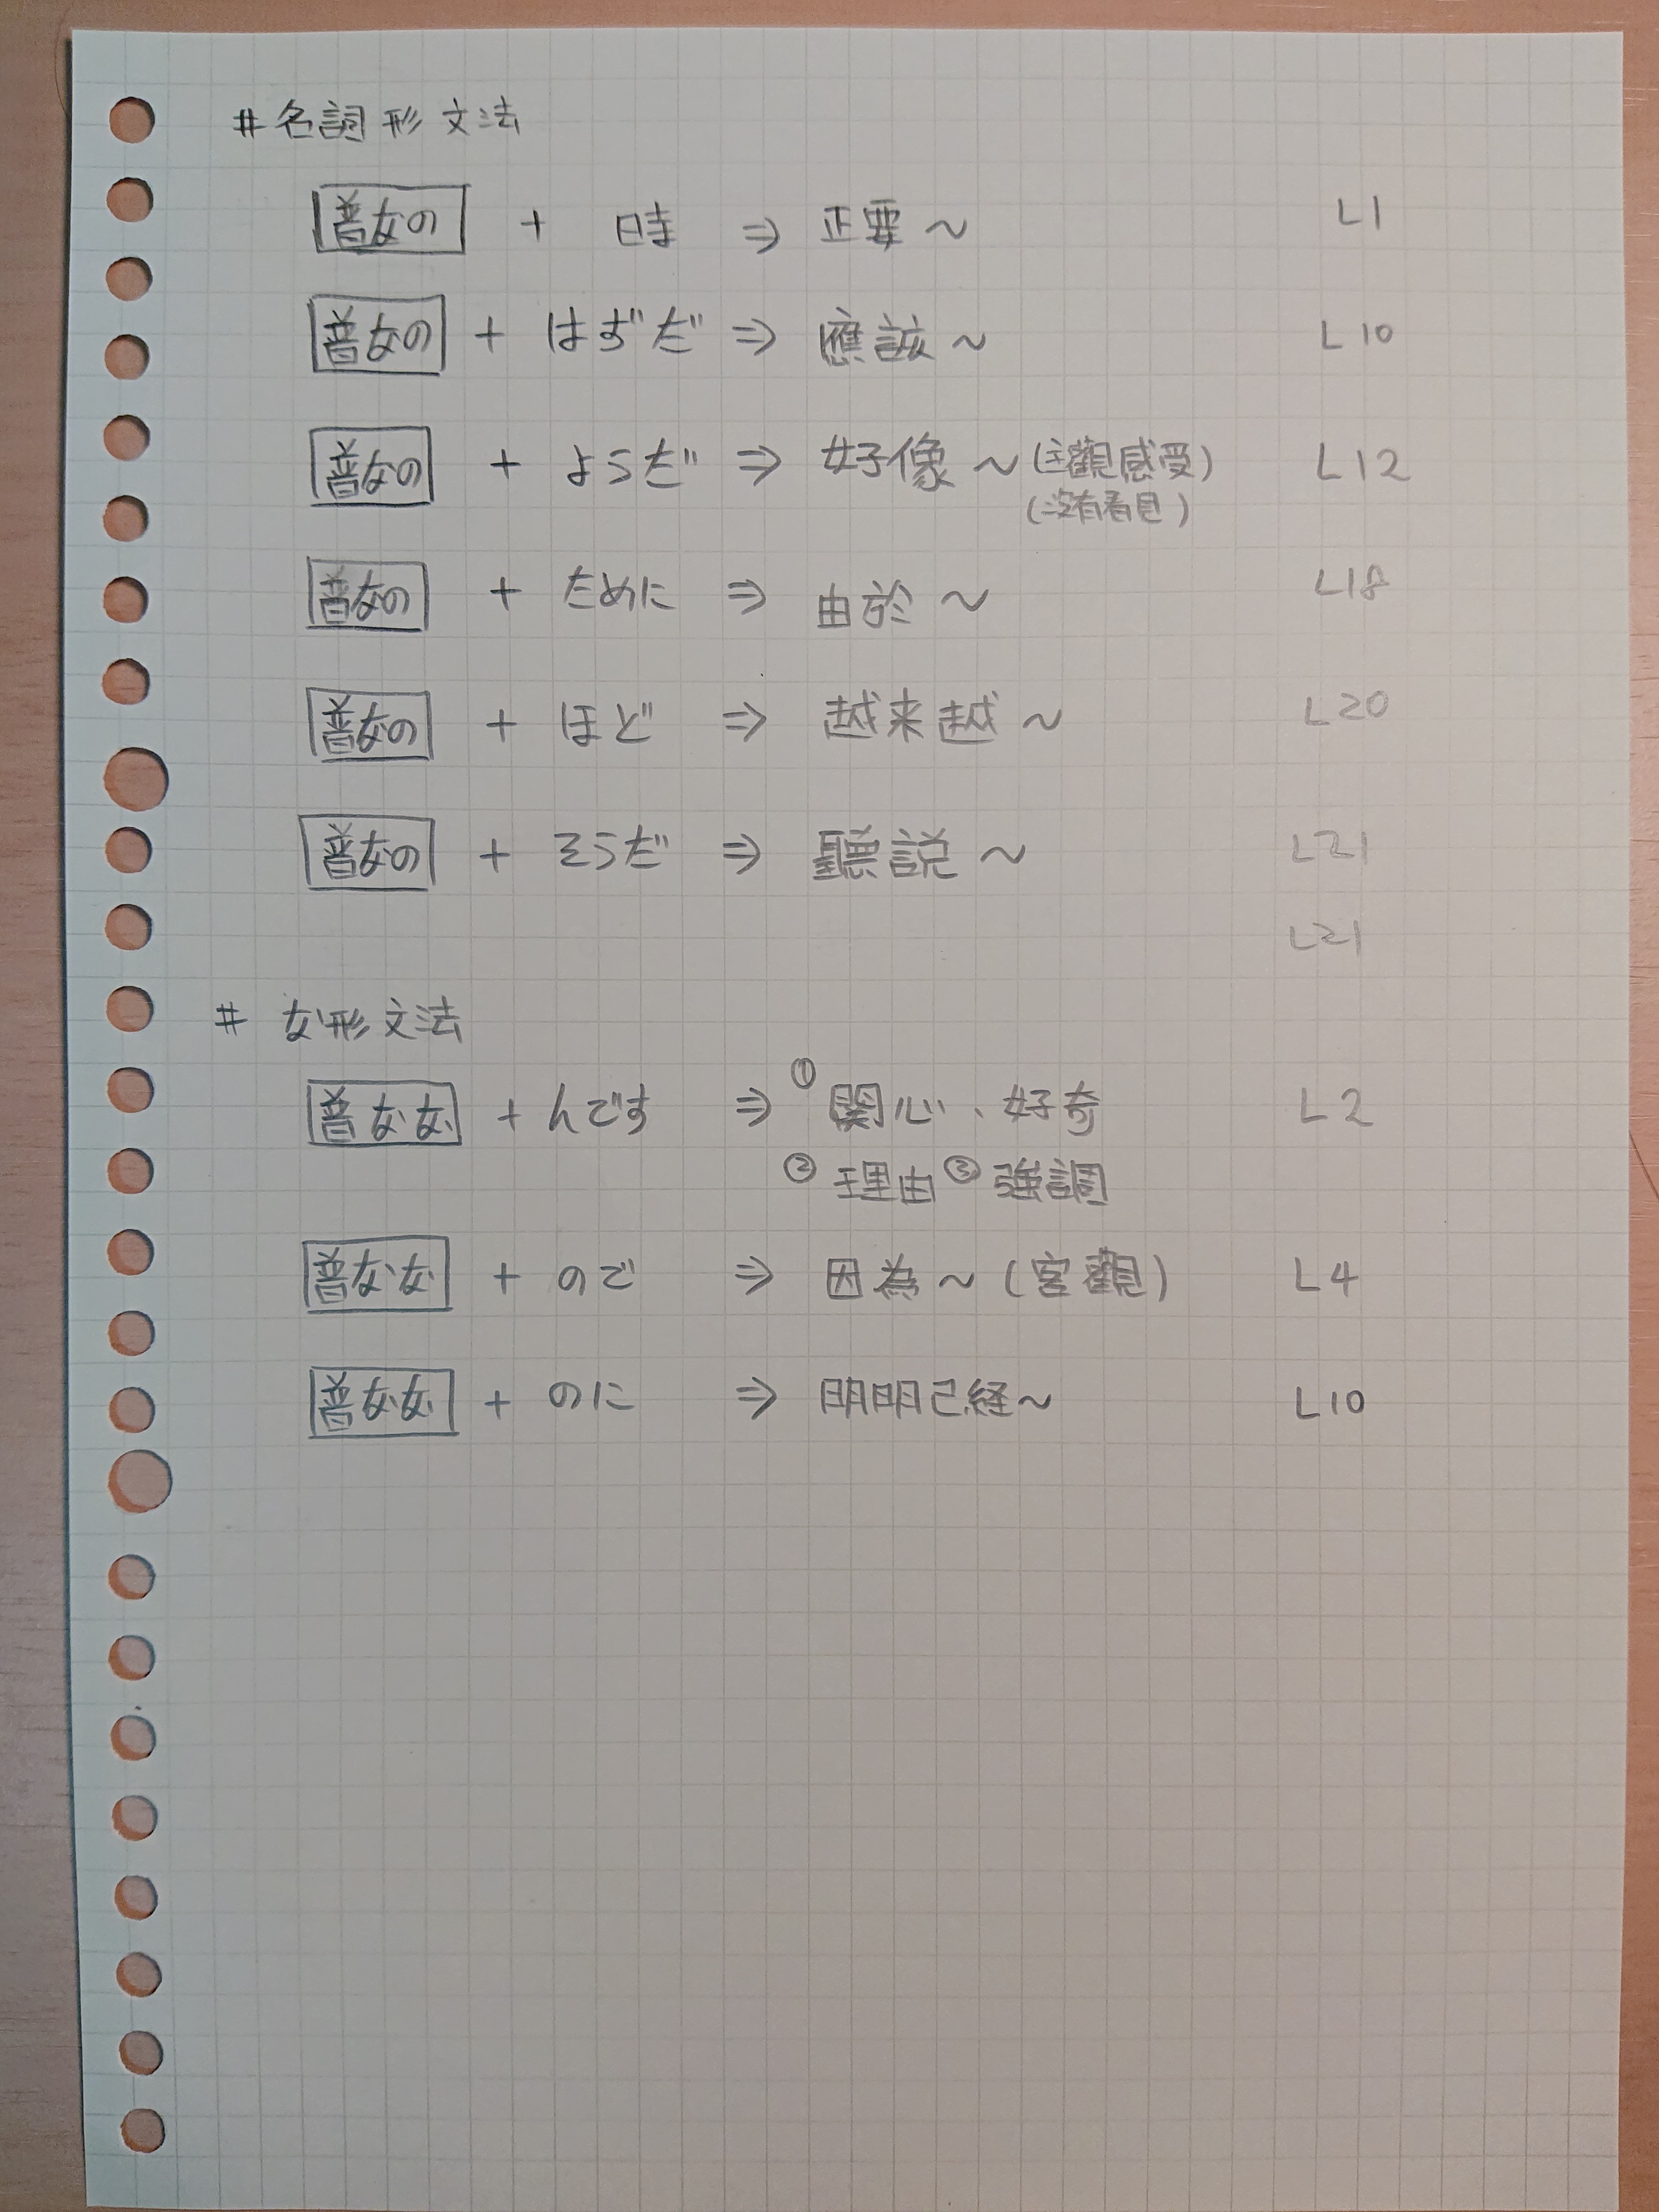 #名詞形文法
普なの + 時 ⇒ 正要～ L1
普なの + はずだ ⇒ 應該～ L10
普なの + ようだ ⇒ 好像～(主觀感受) L12
(沒有看見)
普なの + ために ⇒ 由於～ L18
普なの + ほど ⇒ 越来越～ L20
普なの + そうだ ⇒ 聽説～ L21
L21
# な形文法
普なな + んです ⇒ ①関心、好奇 L2
②理由 ③強調
普なな + ので ⇒ 因為～(客觀) L4
普なな + のに ⇒ 明明已経～ L10